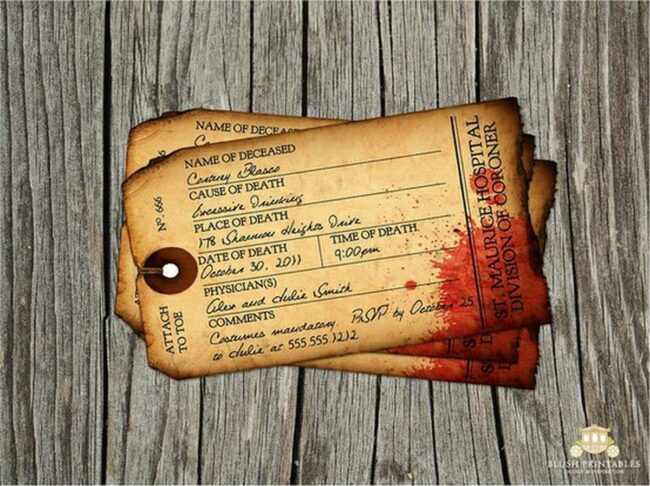 NAME OF DECEASED
NAME OF DECEASED
Courtney Blasco
CAUSE OF DEATH
Excessive Drinking
PLACE OF DEATH
178 Shannon Heights Drive
DATE OF DEATH
October 30, 2011
TIME OF DEATH
9:00pm
PHYSICIAN(S)
Alex and Julie Smith
COMMENTS
Costumes mandatory. RSVP by October 25
to Julie at 555.555.1212
Nº. 666
ATTACH
TO TOE
ST. MAURICE HOSPITAL
DIVISION OF CORONER
BLUSH PRINTABLES